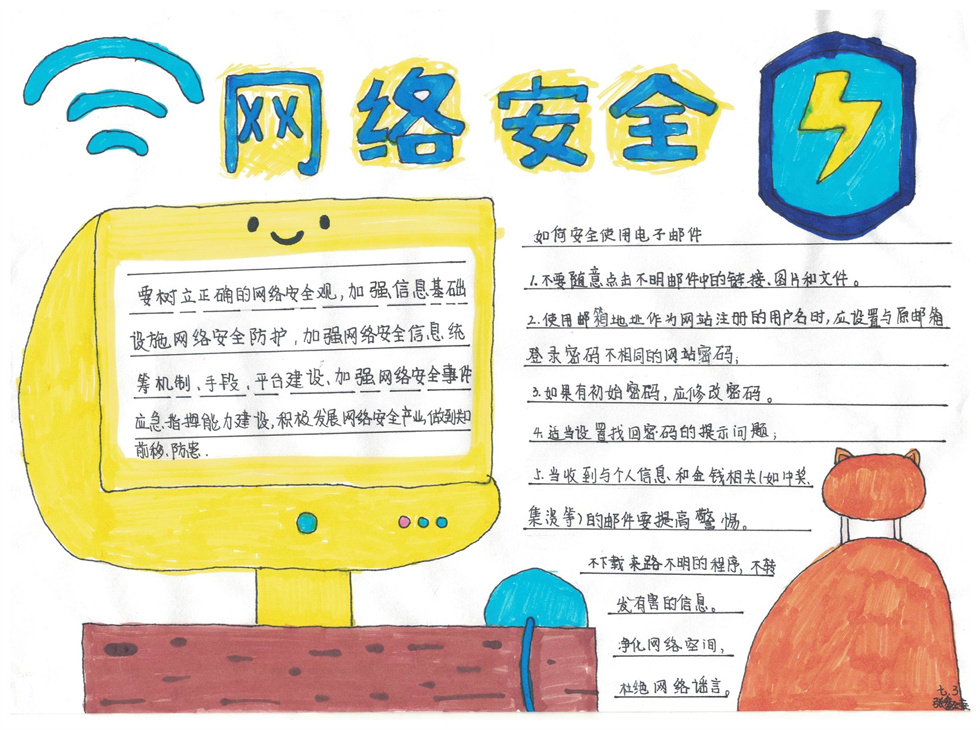 网络安全
要树立正确的网络安全观,加强信息基础
设施网络安全防护,加强网络安全信息统
筹机制、手段、平台建设、加强网络安全事件
应急指挥能力建设,积极发展网络安全产业,做到关口
前移,防患.
如何安全使用电子邮件
1.不要随意点击不明邮件中的链接、图片和文件。
2.使用邮箱地址作为网站注册的用户名时,应设置与原邮箱
登录密码不相同的网站密码;
3.如果有初始密码,应修改密码。
4.适当设置找回密码的提示问题;
5.当收到与个人信息和金钱相关(如中奖、
集资等)的邮件要提高警惕。
不下载来路不明的程序,不转
发有害的信息。
净化网络空间,
杜绝网络谣言。
七.3